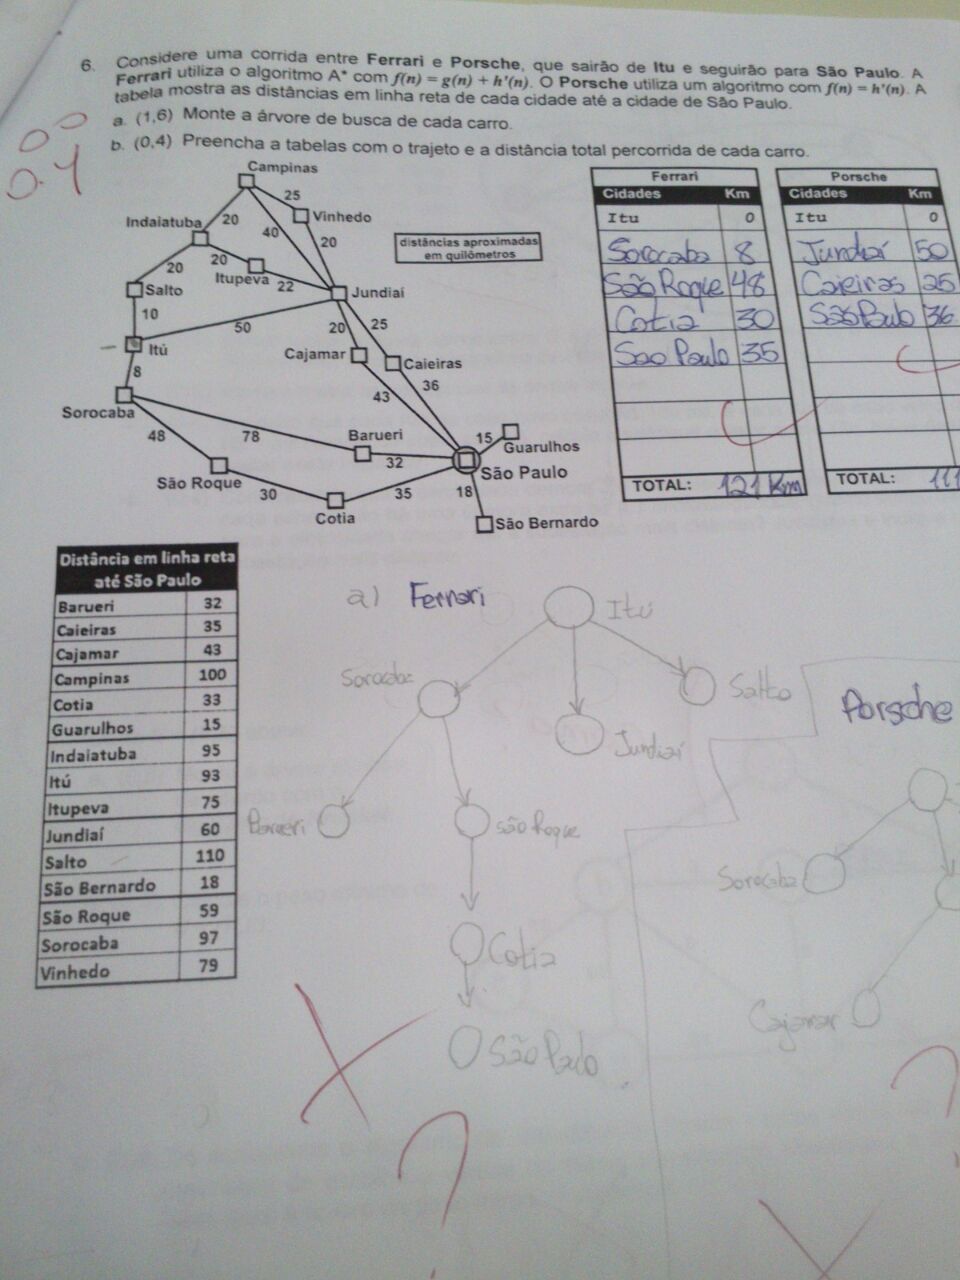 6. Considere uma corrida entre Ferrari e Porsche, que sairão de Itu e seguirão para São Paulo. A
Ferrari utiliza o algoritmo A* com f(n) = g(n) + h'(n). O Porsche utiliza um algoritmo com f(n) = h'(n). A
tabela mostra as distâncias em linha reta de cada cidade até a cidade de São Paulo.
a. (1,6) Monte a árvore de busca de cada carro.
b. (0,4) Preencha a tabelas com o trajeto e a distância total percorrida de cada carro.
0.4
Campinas
25
Vinhedo
Indaiatuba
20
40
20
20
20
Itupeva
22
Salto
Jundiaí
10
50
20
25
Itú
Cajamar
Caieiras
8
36
43
Sorocaba
78
Barueri
15
Guarulhos
48
32
São Paulo
São Roque
30
35
18
Cotia
São Bernardo
distâncias aproximadas
em quilômetros
Ferrari
Cidades Km
Itu 0
Sorocaba 8
São Roque 48
Cotia 30
Sao Paulo 35
TOTAL: 121 Km
Porsche
Cidades Km
Itu 0
Jundiaí 50
Caieiras 25
São Paulo 36
TOTAL: 111
Distância em linha reta
até São Paulo
Barueri 32
Caieiras 35
Cajamar 43
Campinas 100
Cotia 33
Guarulhos 15
Indaiatuba 95
Itú 93
Itupeva 75
Jundiaí 60
Salto 110
São Bernardo 18
São Roque 59
Sorocaba 97
Vinhedo 79
a) Ferrari
Itú
Sorocaba
Salto
Jundiaí
Barueri
São Roque
Cotia
São Paulo
Porsche
Sorocaba
Cajamar
?
?